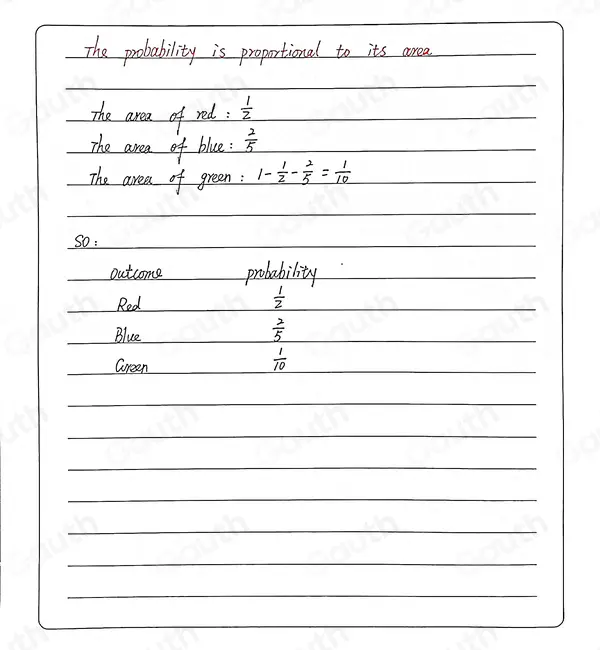 The probability is proportional to its area
The area of red : 1/2
The area of blue : 2/5
The area of green : 1 - 1/2 - 2/5 = 1/10
SO :
outcome probability
Red 1/2
Blue 2/5
Green 1/10